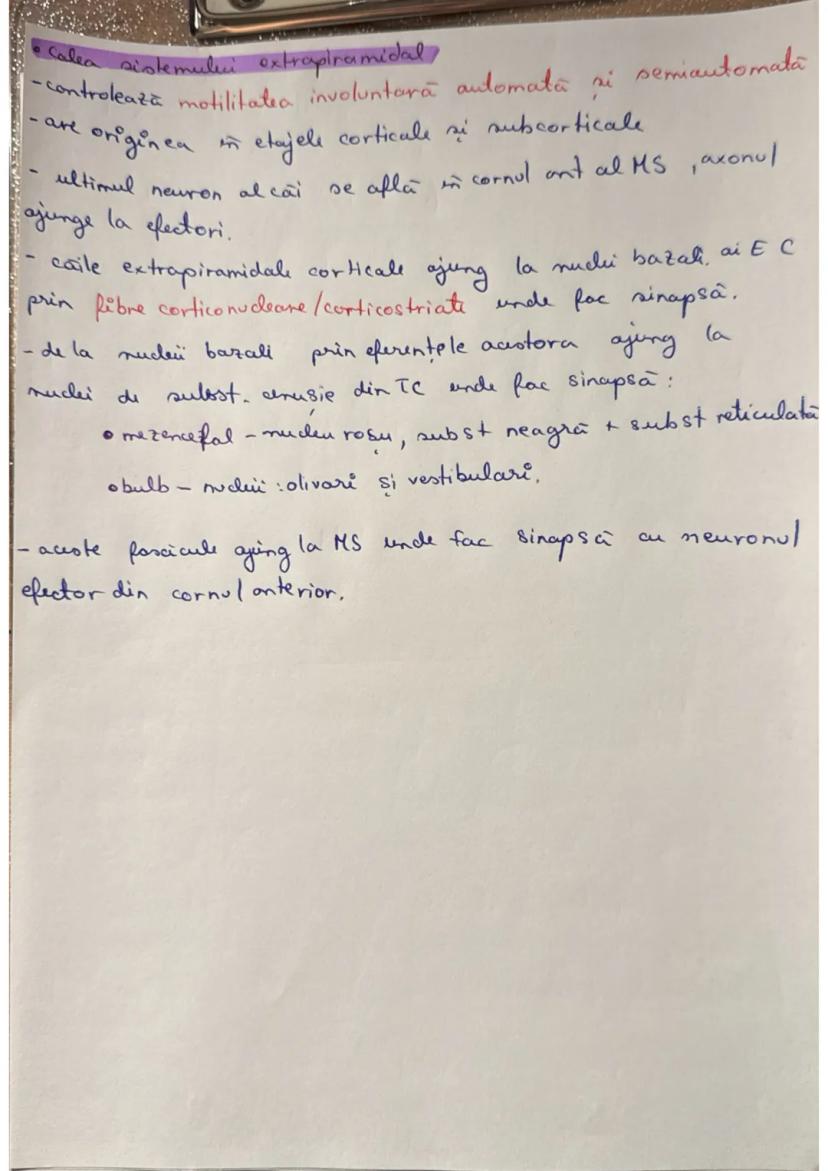 • Calea sistemului extrapiramidal
- controlează motilitatea involuntară automată și semiautomată
- are originea în etajele corticale și subcorticale
- ultimul neuron al căi se află în cornul ant al MS, axonul
ajunge la efectori.
- căile extrapiramidale corticale ajung la nuclei bazali ai E C
prin fibre corticonucleare/corticostriate unde fac sinapsă.
- de la nucleii bazali prin eferențele acestora ajung la
nuclei de subst. cenușie din TC unde fac sinapsă:
• mezencefal - nucleu roșu, subst neagră + subst reticulată
• bulb - nucleii : olivari și vestibulari.
- aceste fascicule ajung la MS unde fac sinapsă cu neuronul
efector din cornul anterior.